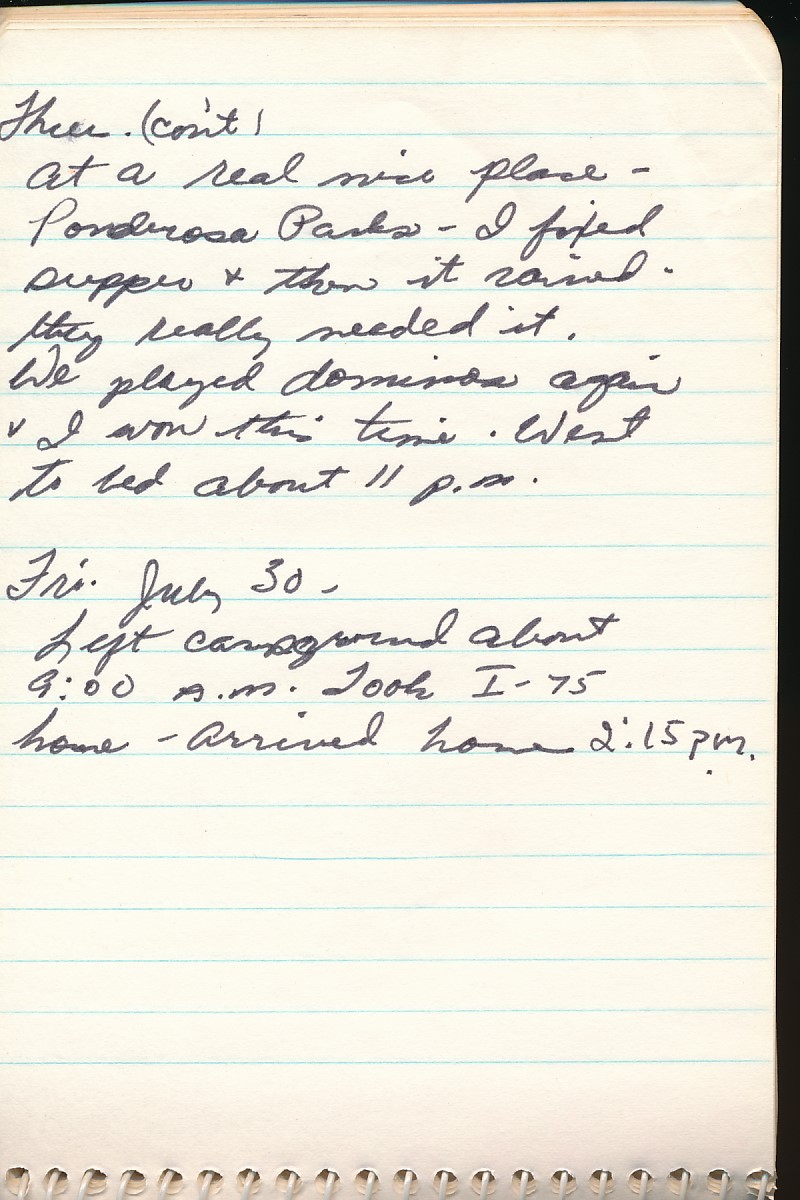 Thur. (con't)
at a real nice place -
Ponderosa Parks - I fixed
supper & then it rained.
they really needed it.
We played dominoes again
& I won this time. Went
to bed about 11 p.m.
Fri. July 30 -
Left campground about
9:00 a.m. Took I-75
home - Arrived home 2:15 pm.